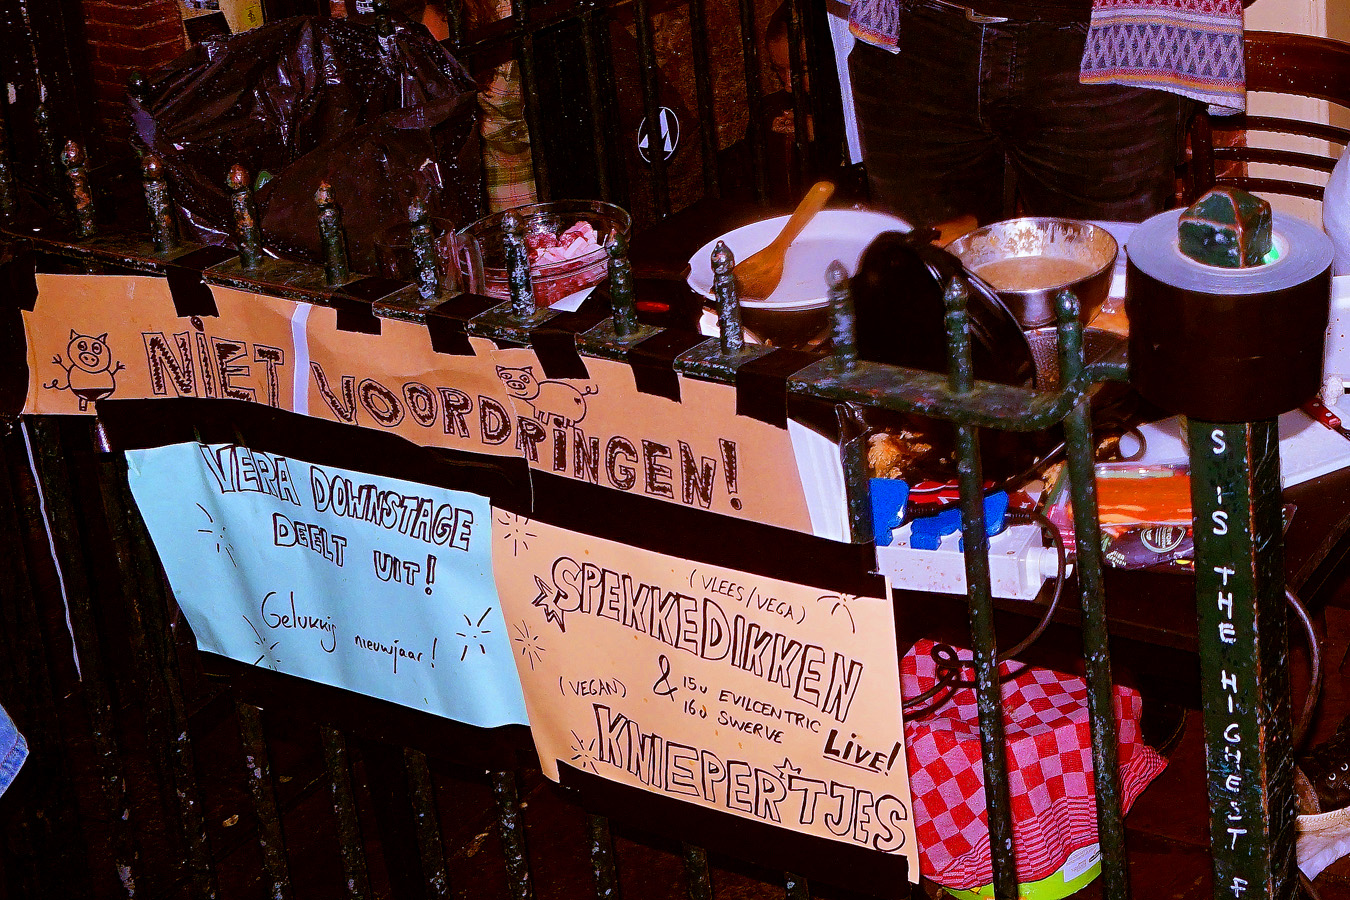 NiET VOORDRiNGEN!
VERA DOWNSTAGE
DEELT UIT!
Gelukkig nieuwjaar!
(VLEES/VEGA)
SPEKKEDIKKEN
&
15u EVILCENTRIC
16u SWERVE
LiVE!
(VEGAN)
KNIEPERTJES
S iS THE HIGHEST F